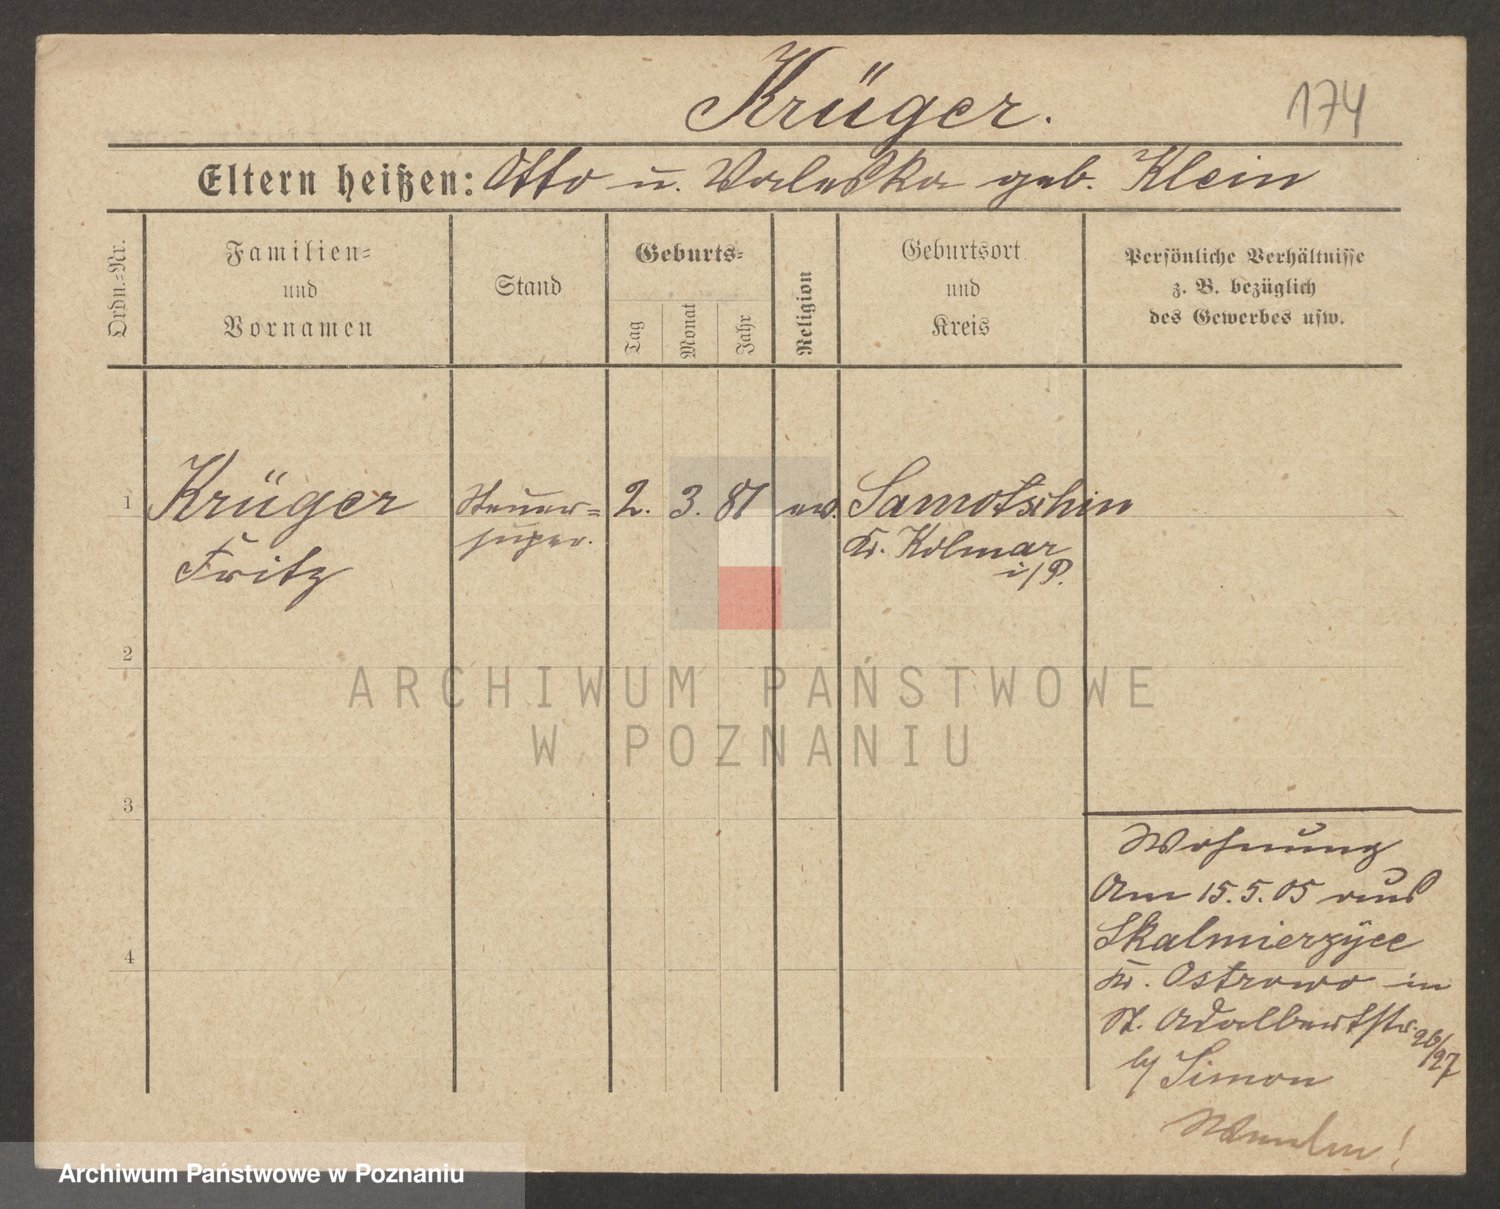 Krüger.
174
Eltern heißen: Otto u. Valeska geb. Klein
Ordn.-Nr.
Familien-
und
Vornamen
Stand
Geburts-
Tag
Monat
Jahr
Religion
Geburtsort
und
Kreis
Persönliche Verhältnisse
z. B. bezüglich
des Gewerbes usw.
1
Krüger
Fritz
Steuer-
super.
2. 3. 81
ev.
Samotschin
Kr. Kolmar
i/P.
2
3
4
Wohnung
Am 15.5.05 aus
Skalmierzyce
Kr. Ostrowo in
St. Adalbertstr. 26/27
by Simon
ARCHIWUM PAŃSTWOWE
W POZNANIU
Archiwum Państwowe w Poznaniu